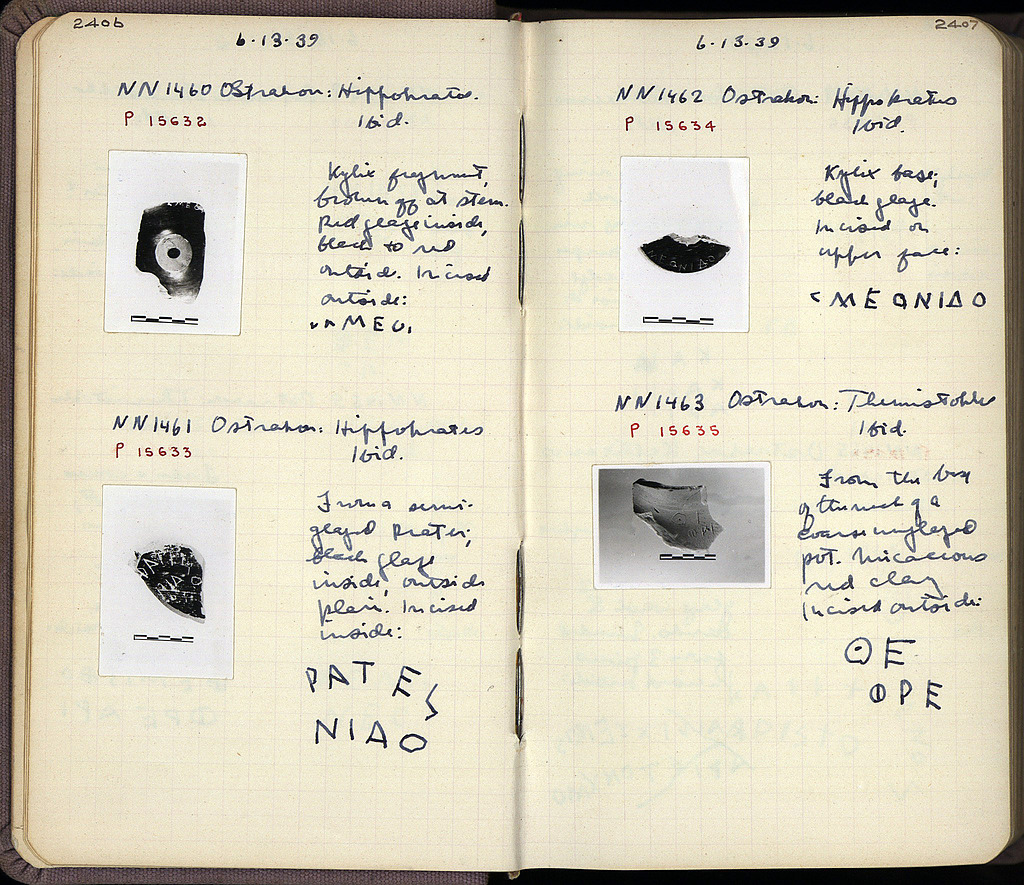 2406
6·13·39
NN1460 Ostrakon: Hippokrates.
Ibid.
P 15632
Kylix fragment,
broken off at stem.
Red glaze inside,
black to red
outside. Incised
outside:
ΜΕΟ
NN1461 Ostrakon: Hippokrates
Ibid.
P 15633
From a semi-
glazed krater;
black glaze
inside, outside
plain. Incised
inside:
ΡΑΤΕΣ
ΝΙΔΟ
2407
6·13·39
NN1462 Ostrakon: Hippokrates
Ibid.
P 15634
Kylix base;
black glaze.
Incised on
upper face:
ΜΕΟΝΙΔΟ
NN1463 Ostrakon: Themistokles
Ibid.
P 15635
From the
of the neck of a
coarse unglazed
pot. Micaceous
red clay
Incised outside:
ΘΕ
ΦΡΕ